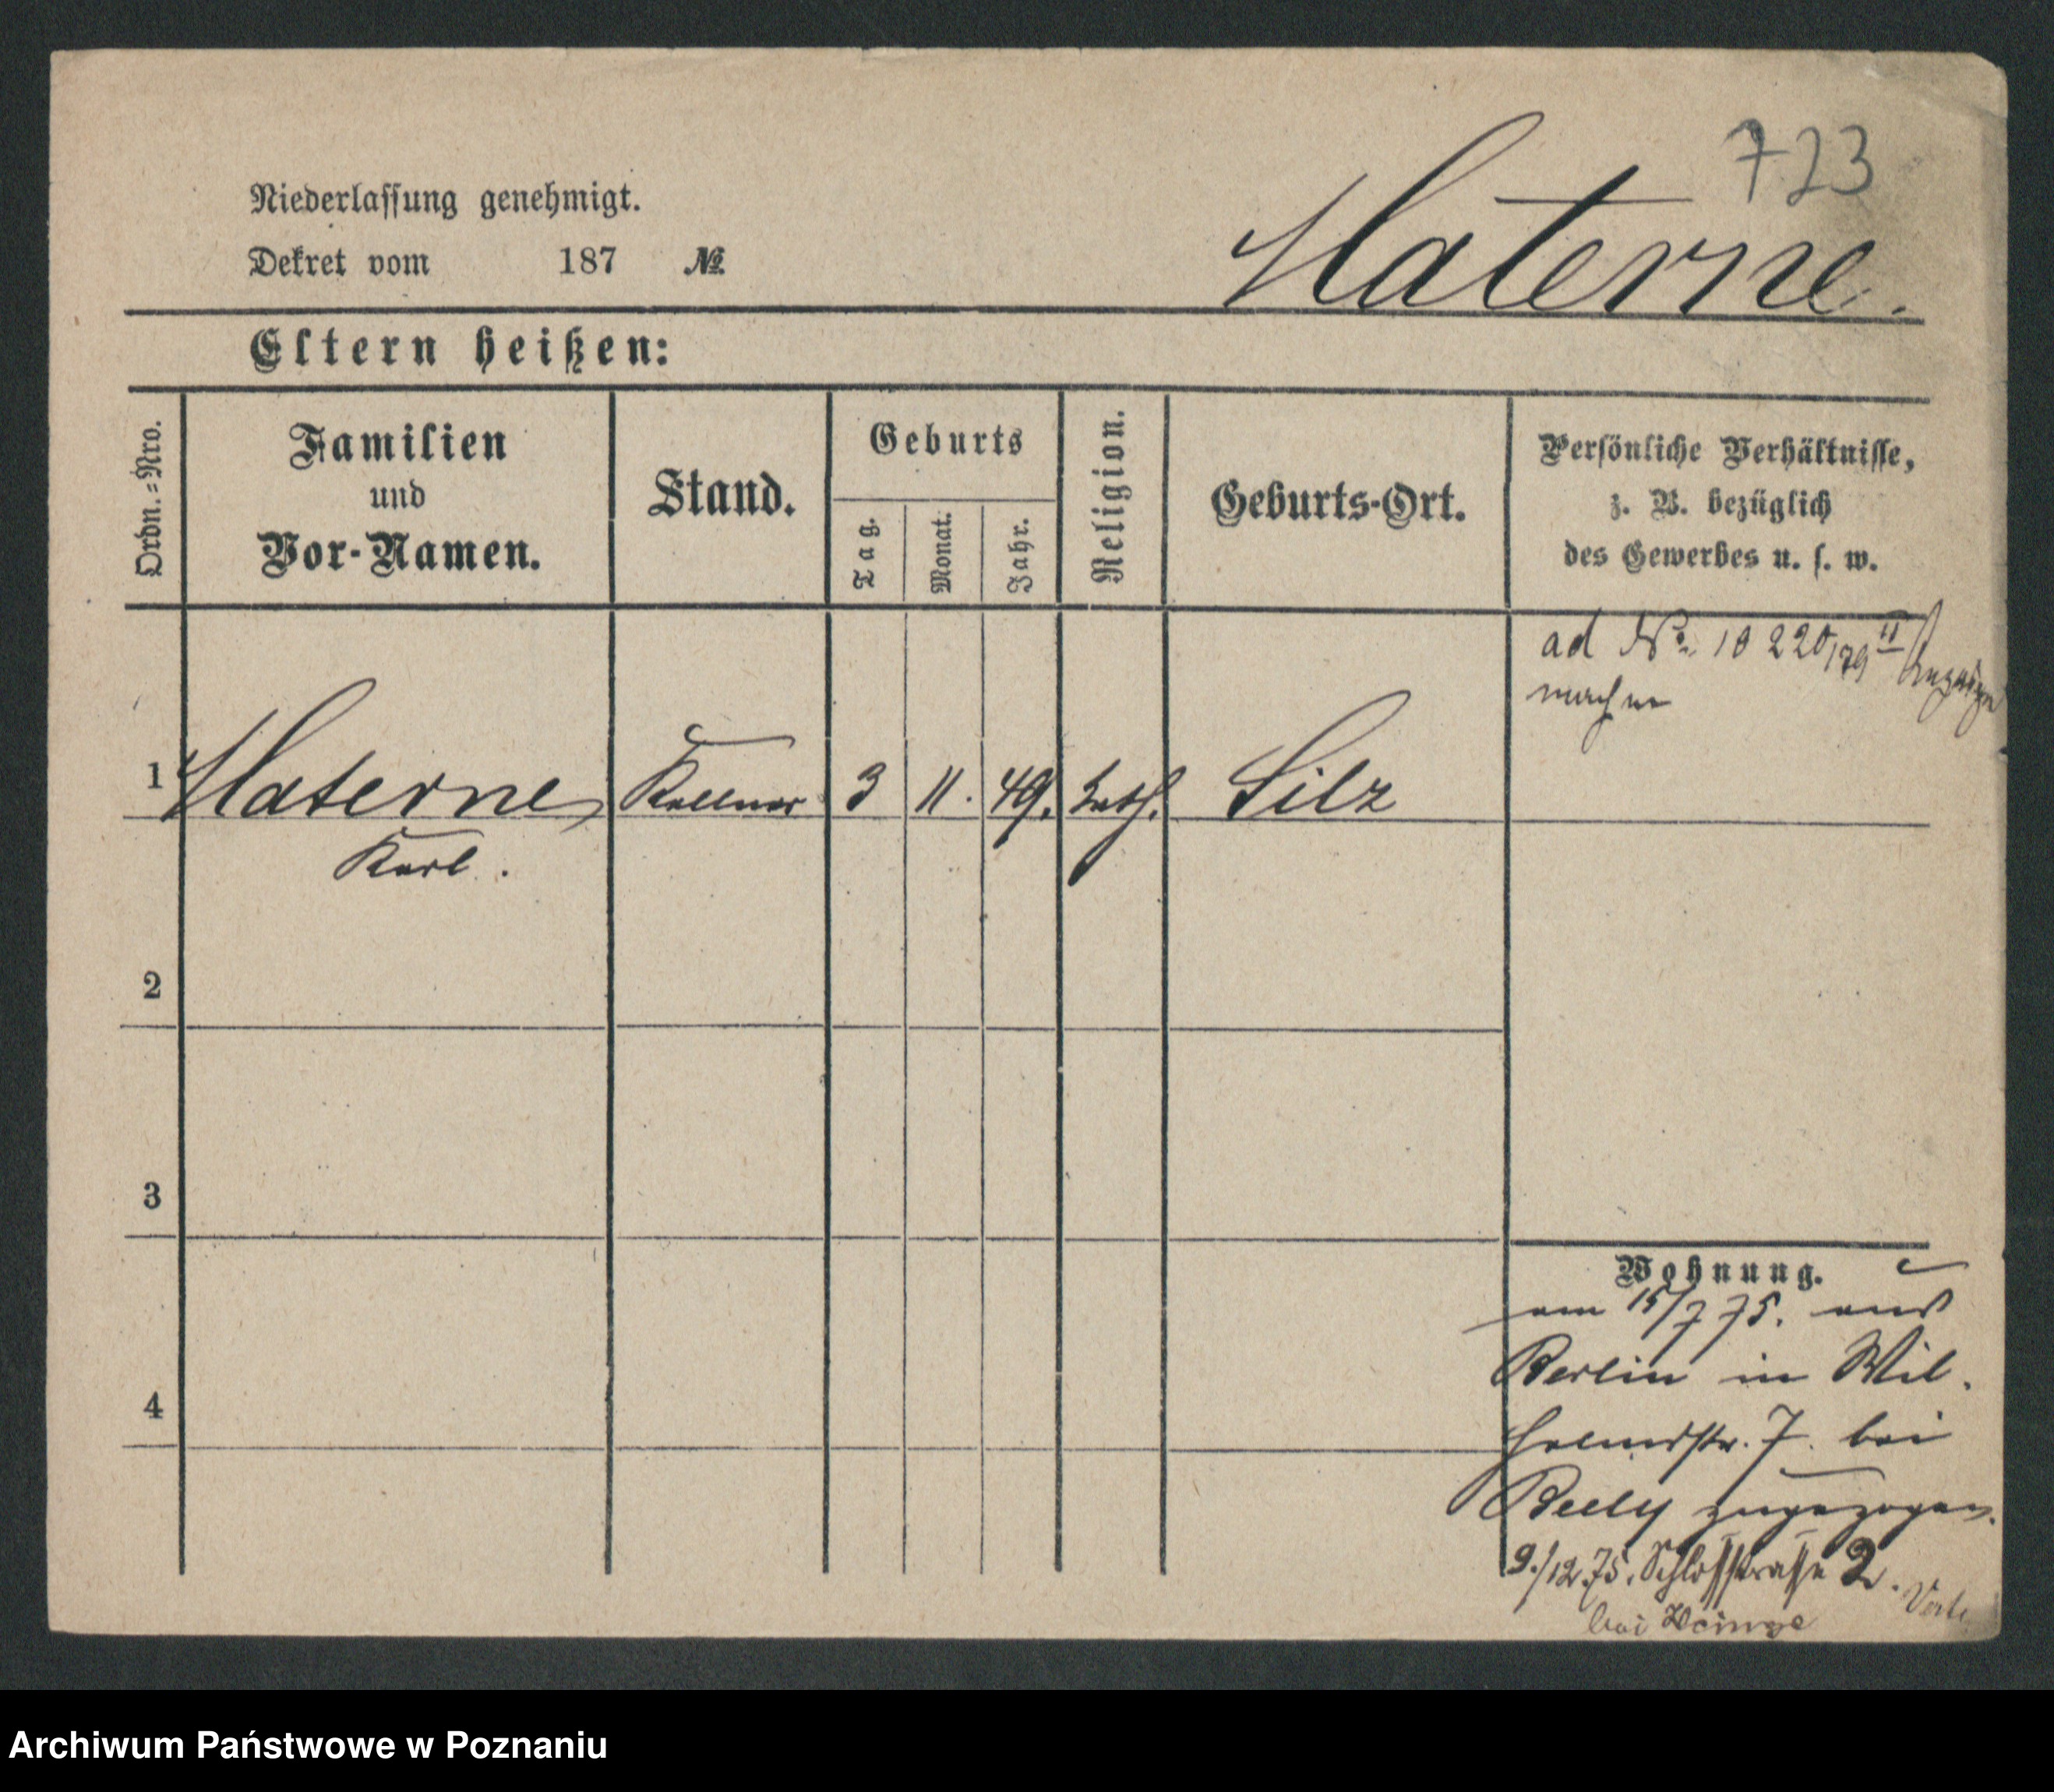 723
Materne.
Niederlassung genehmigt.
Dekret vom 187 №
Eltern heißen:
Ordn.=Nro.
Familien
und
Vor-Namen.
Stand.
Geburts
Tag.
Monat.
Jahr.
Religion.
Geburts-Ort.
Persönliche Verhältnisse,
z. B. bezüglich
des Gewerbes u. s. w.
ad № 10220/79 II Anzeige
machen
1 Materne Kellner 3 11. 49. kath. Silz
Karl.
2
3
4
Wohnung.
am 15/7 75. aus
Berlin in Wil.
helmstr. 7. bei
Beely zugezogen.
9./12.75. Schloßstraße 2.
bei